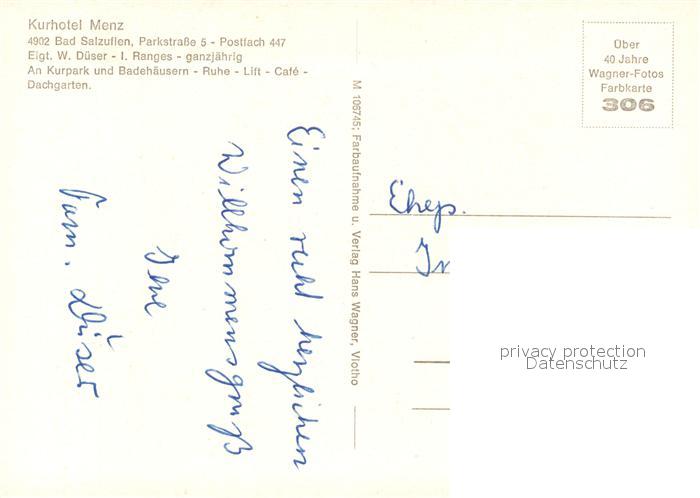 Kurhotel Menz
4902 Bad Salzuflen, Parkstraße 5 - Postfach 447
Eigt. W. Düser - I. Ranges - ganzjährig
An Kurpark und Badehäusern - Ruhe - Lift - Café -
Dachgarten.
Über
40 Jahre
Wagner-Fotos
Farbkarte
306
M 106745; Farbaufnahme u. Verlag Hans Wagner, Vlotho
Einen recht herzlichen
Willkommensgruß
Ihre
Fam. Düser
Ehep.
privacy protection
Datenschutz